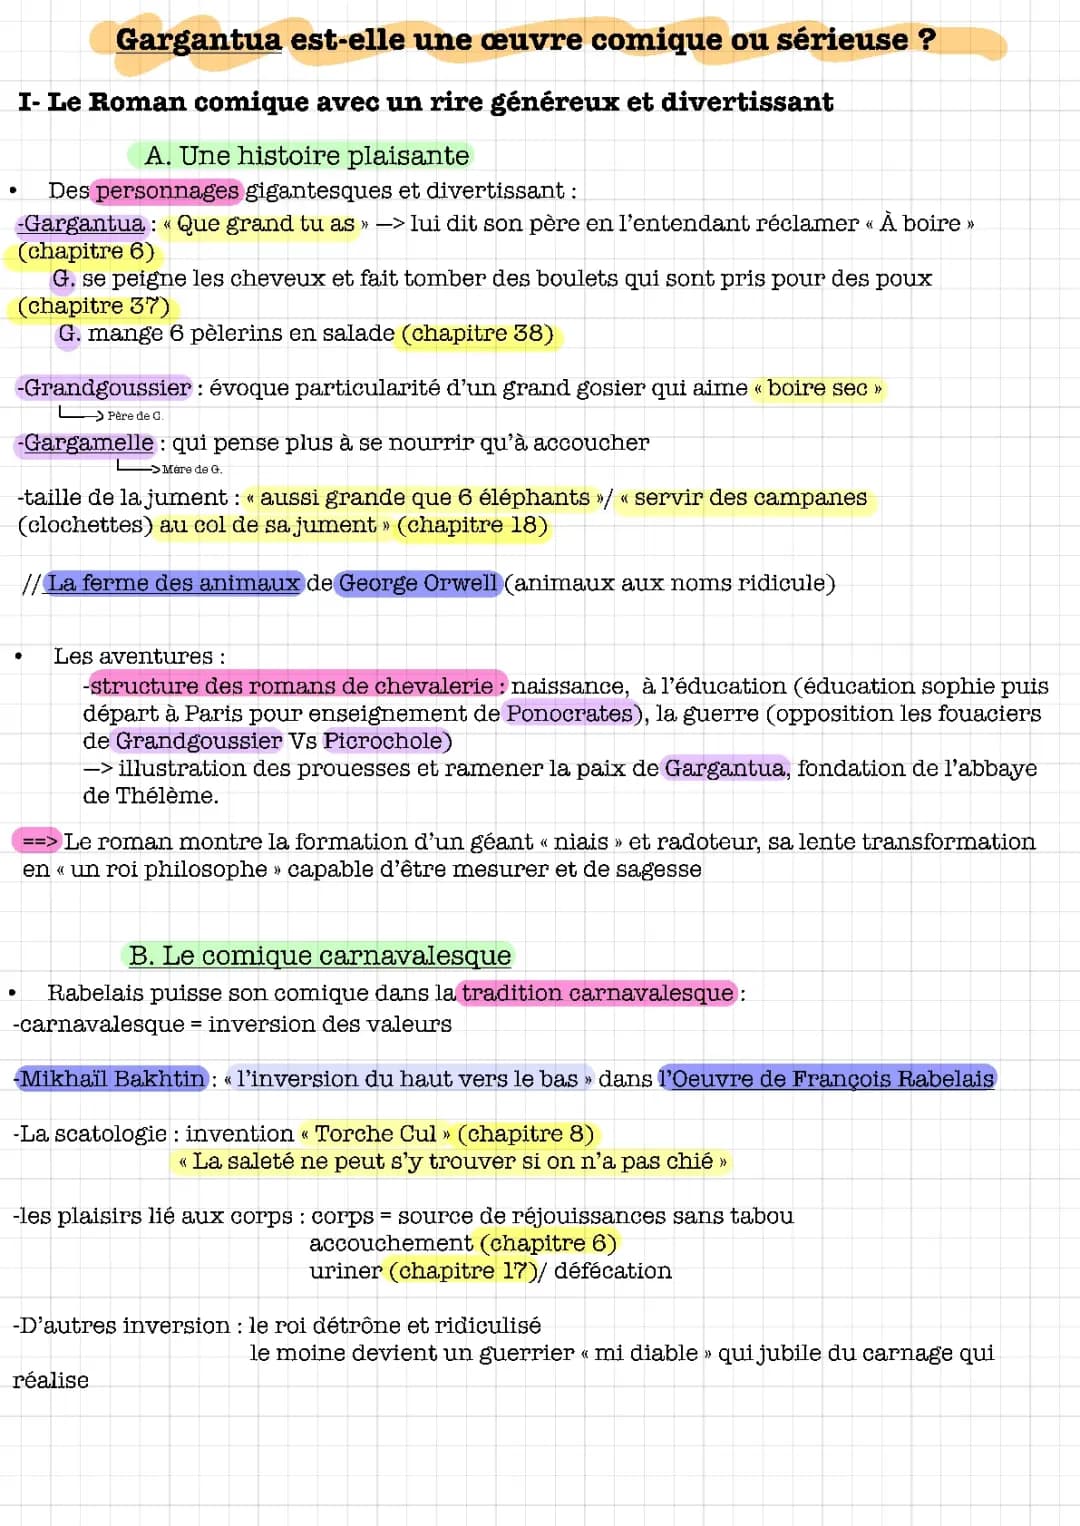 Gargantua est-elle une œuvre comique ou sérieuse ?
I- Le Roman comique avec un rire généreux et divertissant
A. Une histoire plaisante
• Des personnages gigantesques et divertissant :
-Gargantua : « Que grand tu as » —> lui dit son père en l'entendant réclamer « À boire »
(chapitre 6)
G. se peigne les cheveux et fait tomber des boulets qui sont pris pour des poux
(chapitre 37)
G. mange 6 pèlerins en salade (chapitre 38)
-Grandgoussier : évoque particularité d'un grand gosier qui aime « boire sec »
Père de G.
-Gargamelle : qui pense plus à se nourrir qu'à accoucher
Mère de G.
-taille de la jument : « aussi grande que 6 éléphants »/ « servir des campanes
(clochettes) au col de sa jument » (chapitre 18)
// La ferme des animaux de George Orwell (animaux aux noms ridicule)
• Les aventures :
-structure des romans de chevalerie : naissance, à l'éducation (éducation sophie puis
départ à Paris pour enseignement de Ponocrates), la guerre (opposition les fouaciers
de Grandgoussier Vs Picrochole)
—> illustration des prouesses et ramener la paix de Gargantua, fondation de l'abbaye
de Thélème.
==> Le roman montre la formation d'un géant « niais » et radoteur, sa lente transformation
en « un roi philosophe » capable d'être mesurer et de sagesse
B. Le comique carnavalesque
• Rabelais puise son comique dans la tradition carnavalesque :
-carnavalesque = inversion des valeurs
-Mikhaïl Bakhtin : « l'inversion du haut vers le bas » dans l'Oeuvre de François Rabelais
-La scatologie : invention « Torche Cul » (chapitre 8)
« La saleté ne peut s'y trouver si on n'a pas chié »
-les plaisirs lié aux corps : corps = source de réjouissances sans tabou
accouchement (chapitre 6)
uriner (chapitre 17)/ défécation
-D'autres inversion : le roi détrône et ridiculisé
le moine devient un guerrier « mi diable » qui jubile du carnage qui
réalise